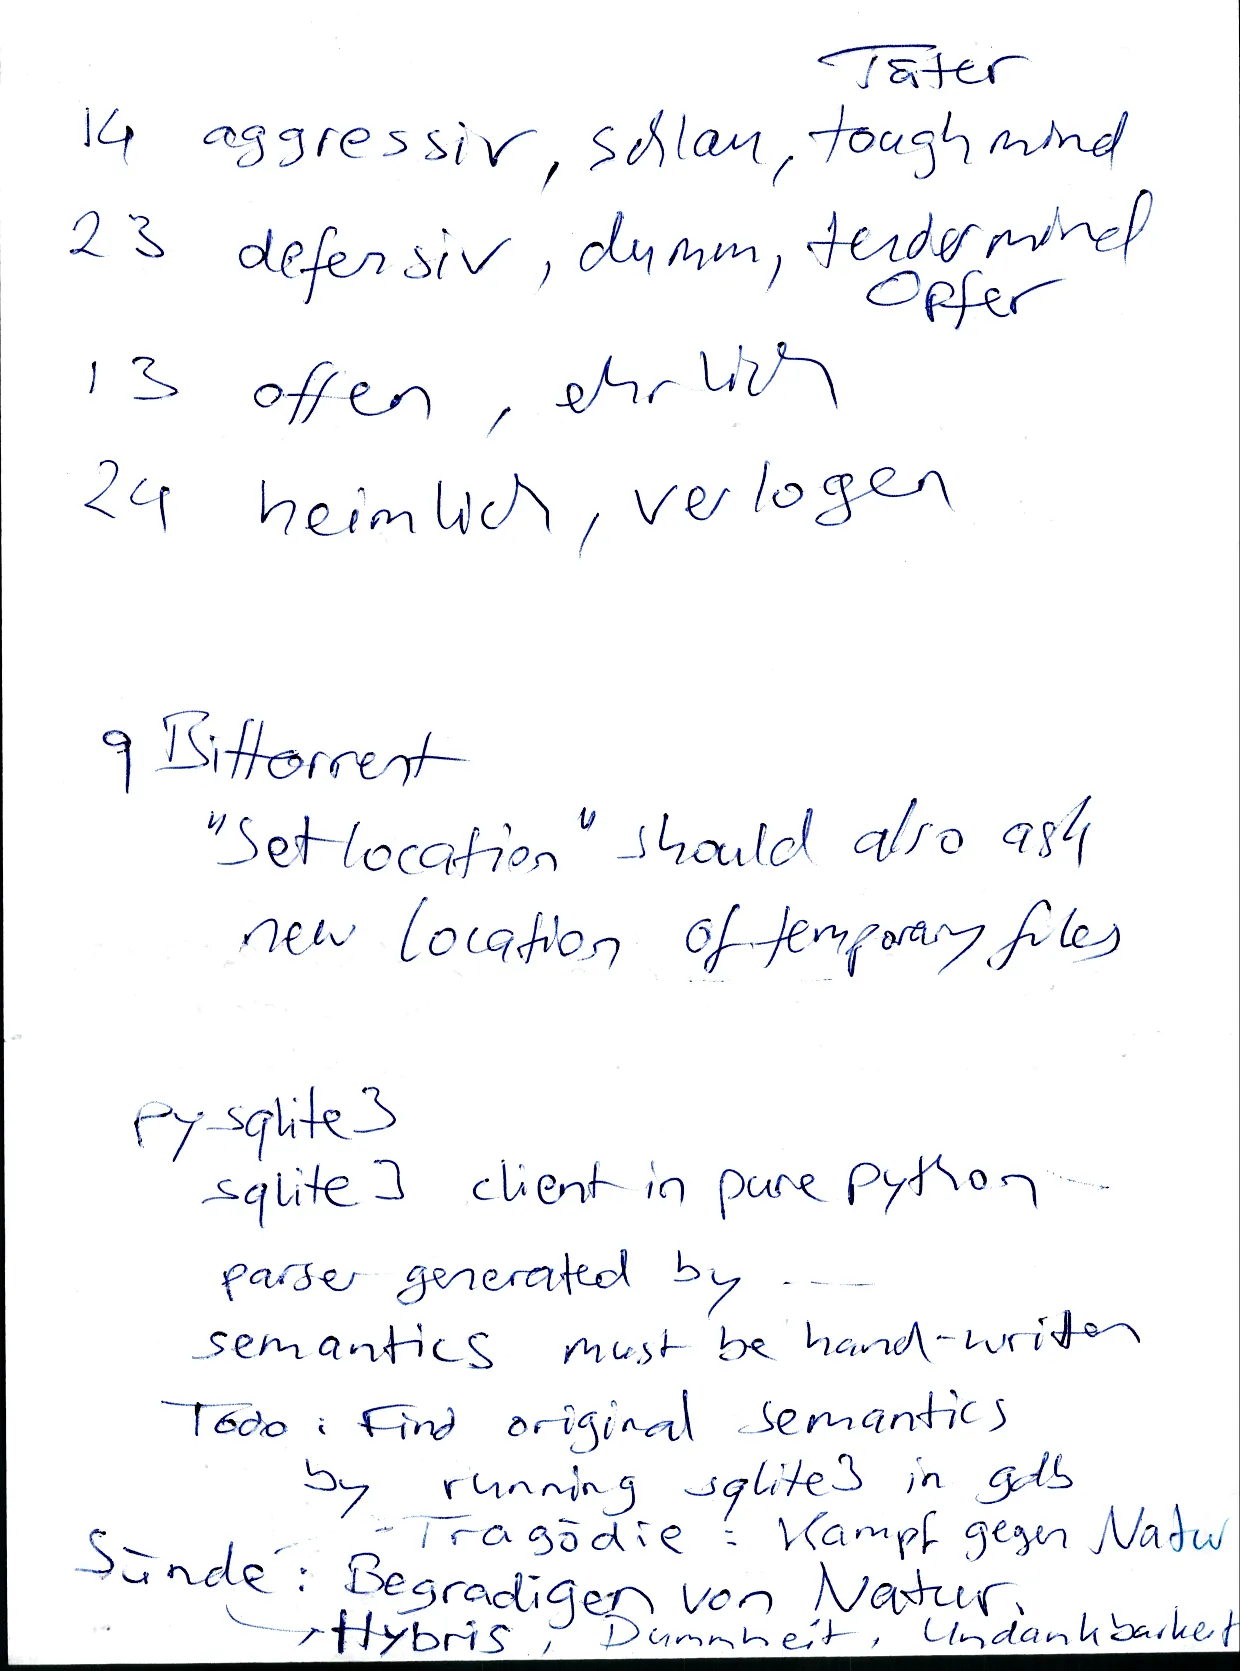 Täter
14 aggressiv, schlau, tough mind
23 defensiv, dumm, tender mind
Opfer
13 offen, ehrlich
24 heimlich, verlogen
q Bittorrent
"Set location" should also ask
new location of temporary files
py-sqlite3
sqlite3 client in pure python
parser generated by ...
semantics must be hand-written
Todo: Find original semantics
by running sqlite3 in gdb
- Tragödie: Kampf gegen Natur
Sünde: Begradigen von Natur.
→ Hybris, Dummheit, Undankbarkeit